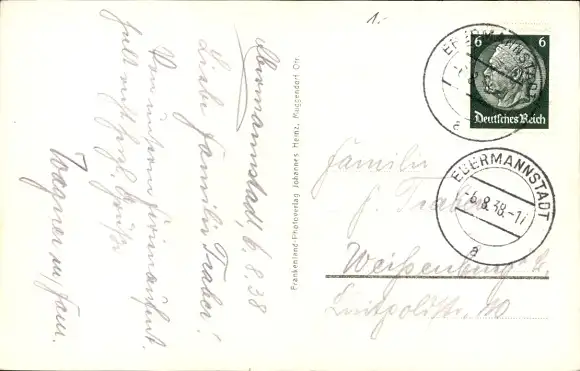 Ebermannstadt, 6.8.38
Liebe Familie Traber!
Von unserm
herzl. Grüße
Wagner u. Fam.
Frankenland-Photoverlag Johannes Heinz, Muggendorf Ofr.
1.-
6 6
Deutsches Reich
EBERMANNSTADT
a
EBERMANNSTADT
-6.8.38.-17
a
Familie
H. Traber
Weißenburg i. B.
Luitpoldstr. 10